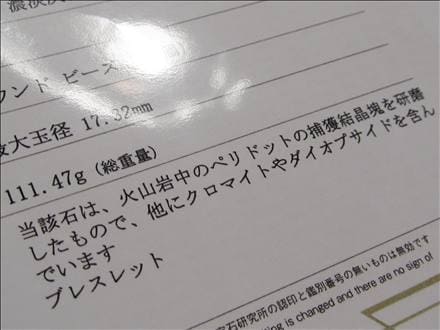 ウンド ビーズ
最大玉径 17.32mm
111.47g (総重量)
当該石は、火山岩中のペリドットの捕獲結晶塊を研磨
したもので、他にクロマイトやダイオプサイドを含ん
でいます
ブレスレット
宝石研究所の認印と鑑別番号の無いものは無効です
is changed and there are no sign of